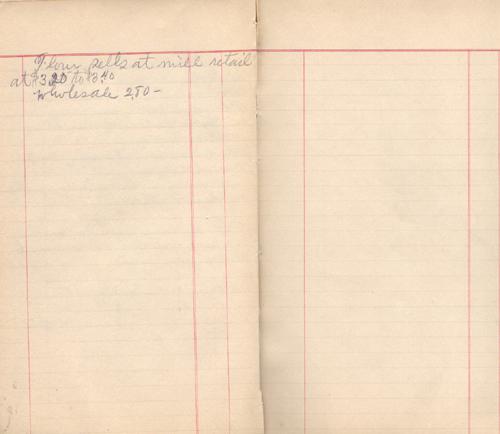 Flour sells at mill retail
at $3.20 to $3.40
wholesale 2.80 -